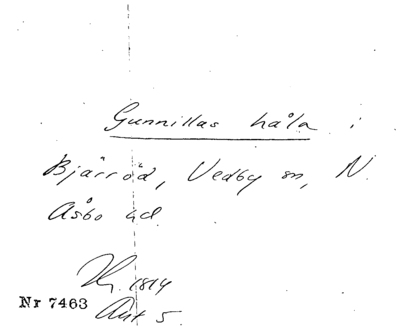 Gunnillas håla i
Bjärröd, Vedby sn, N.
Åsbo hd
1814
Nr 7463
Akt 5.